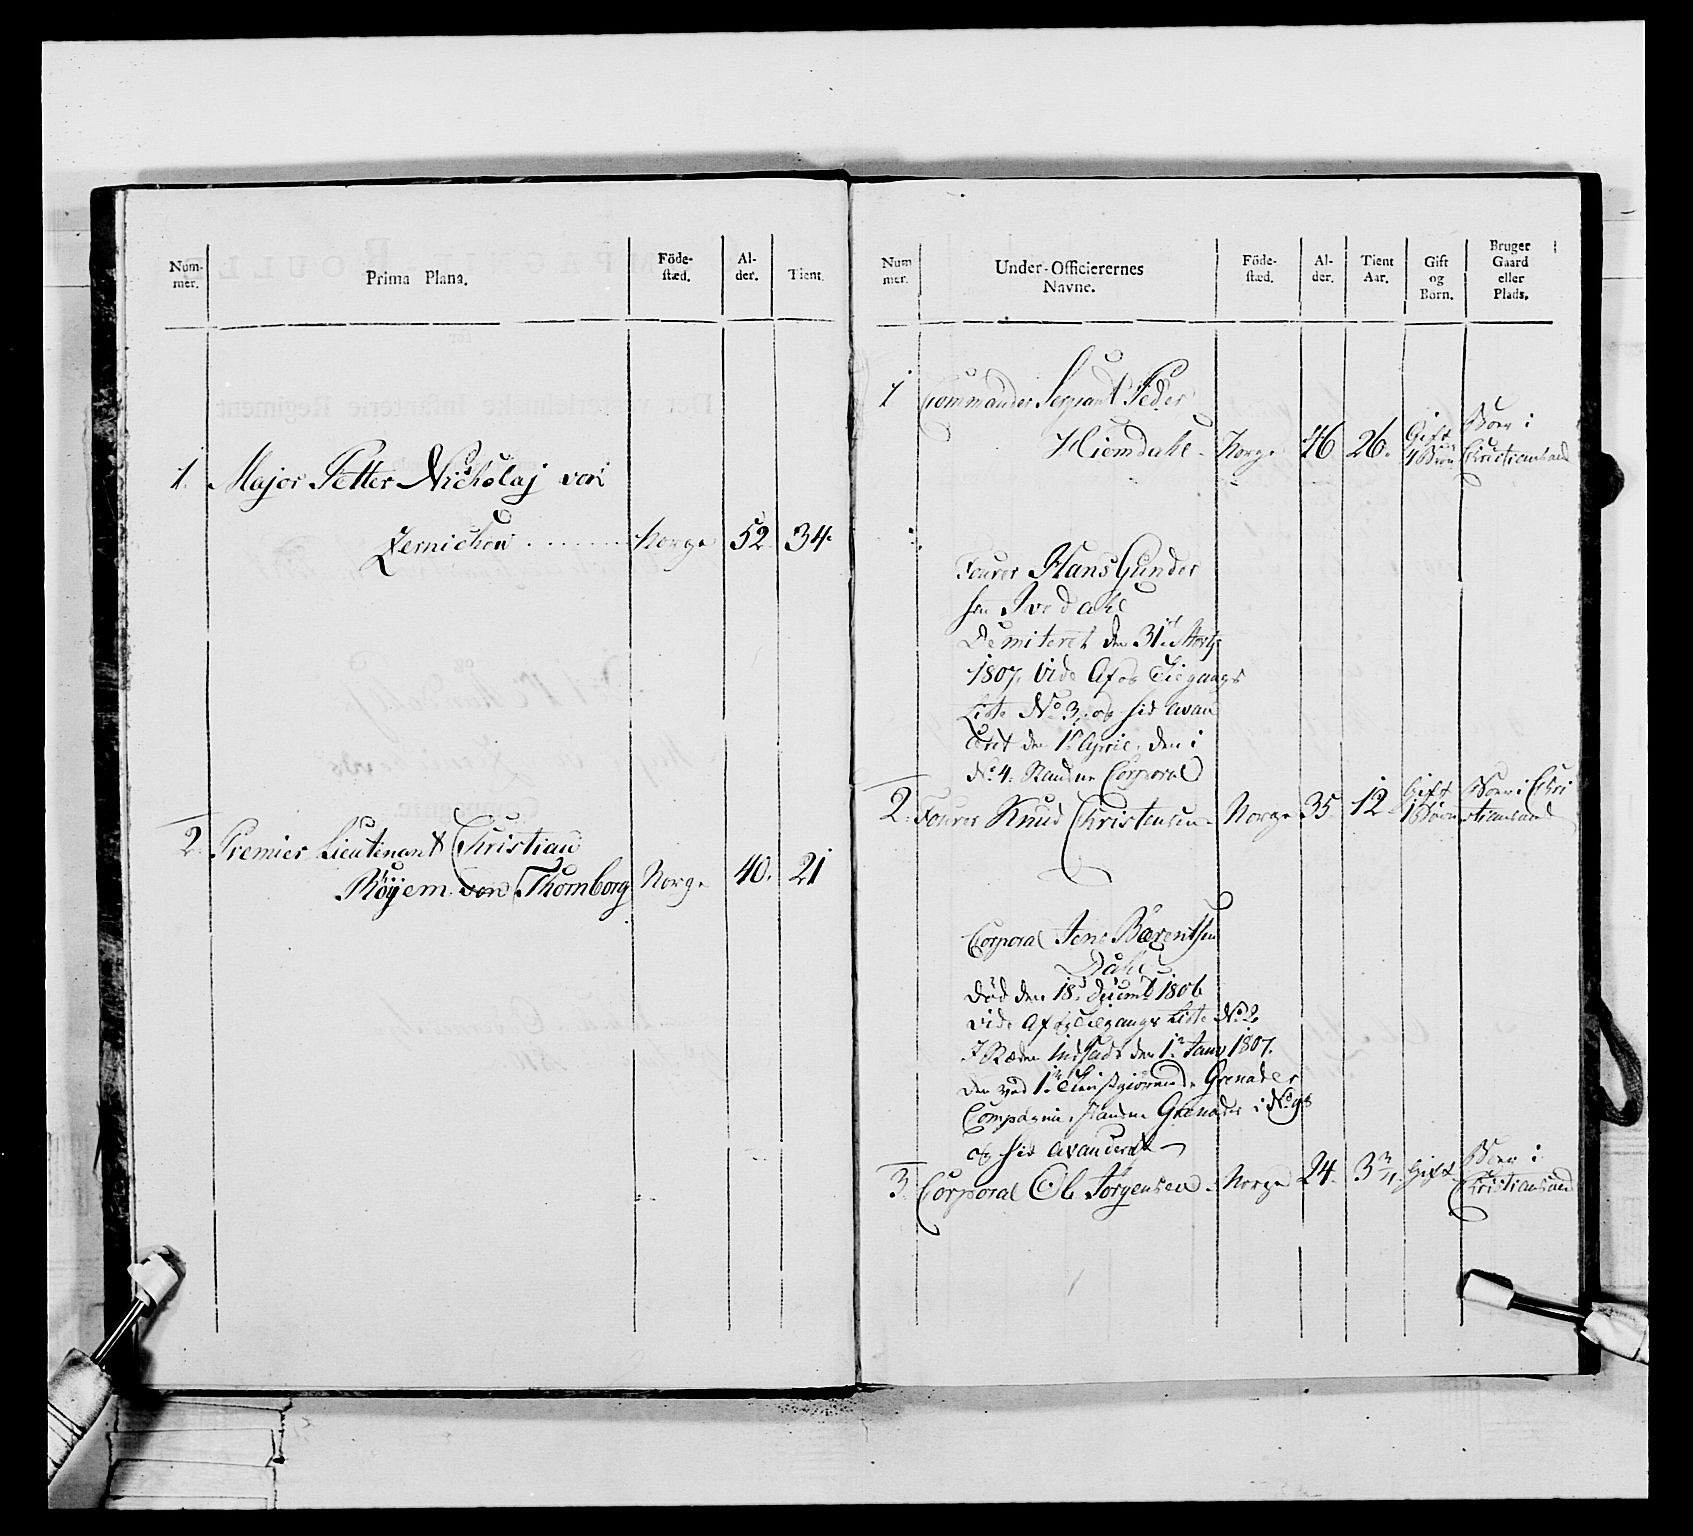 Num-
mer.
Prima Plana.
Föde-
stæd.
Al-
der.
Tient.
1. Major Petter Nicholaj von
Zernichou . . . . . . Norge 52. 34.
2. Premier Lieutinant Christian
Röyem von Thomborg Norge 40. 21
Num
mer.
Under-Officierernes
Navne.
Föde-
stæd.
Al-
der.
Tient
Aar.
Gift
og
Börn.
Bruger
Gaard
eller
Plads.
1 Commander Sergiant Peder
Hiemdahl - Norge 46 26. Gift 4 Börn Boer i Christiansand
Fourer Hans Gunder
sen Ivedahl
Demiteret den 31te Marty
1807, vide Af og Tilgangs
Liste No 3, og hid avan
ceret den 1te April, den i
No 4. staaende Corporal
2. Fourer Knud Christensen - Norge 35. 12 Gift 1 Börn Boer i Chri
stiansand
Corporal Jens Bærentsen
Dahl
död den 18. Decembr 1806
vide Af og Tilgangs Liste No 2.
I Steden indsadt den 1te Janv 1807.
den ved 1te Grenader
Compagnie staaende Grenader i No 98
og hid avanceret
3. Corporal Ole Jorgensen - Norge 24. 3 3/4 Gift Boer i
Christiansand